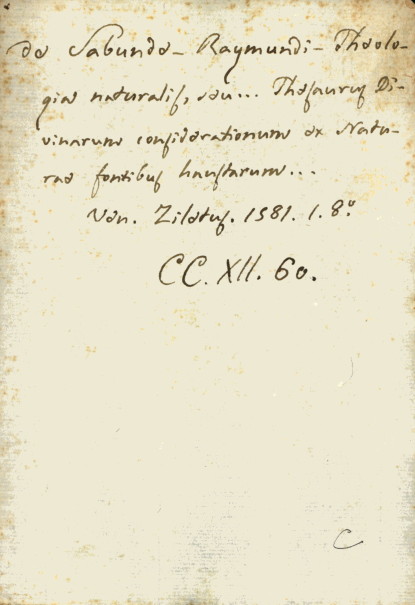 de Sabunde - Raymundi - Theolo-
giæ naturalis, seu... Thesaurus Di-
vinarum considerationum ex Natu-
rae fontibus haustarum...
Ven. Ziletus. 1581. 1. 8.º
CC. XII. 60.
C